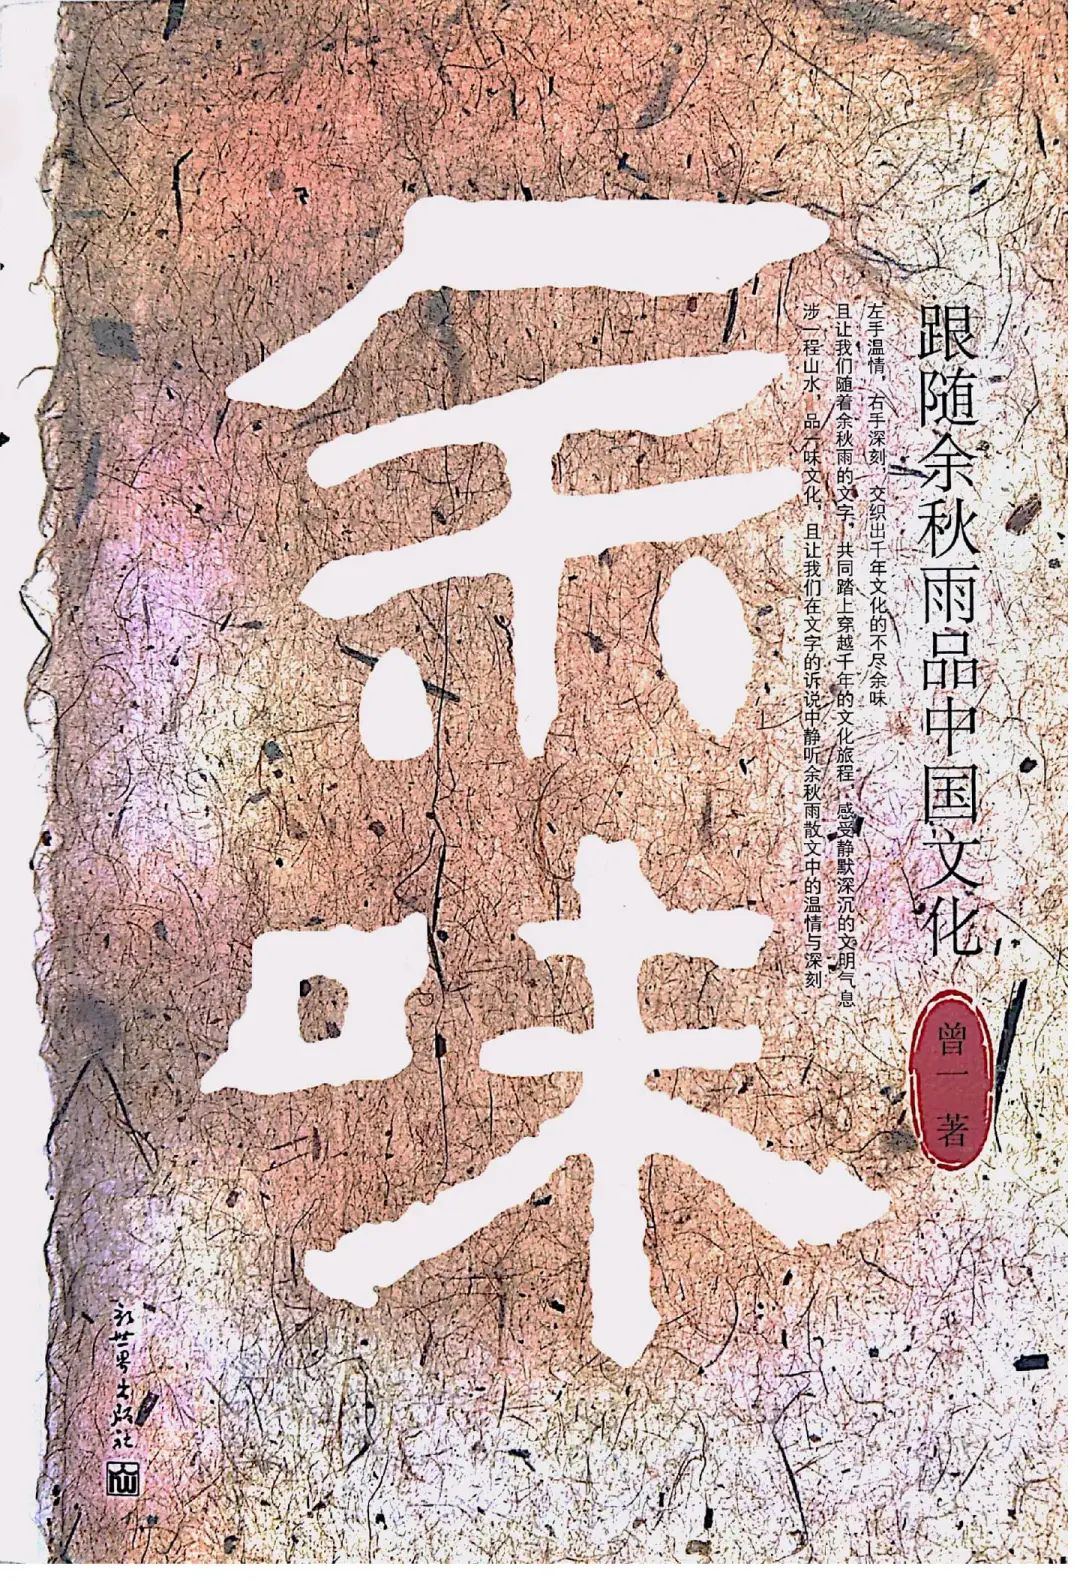 余味
跟随余秋雨品中国文化
曾一 著
左手温情，右手深刻，交织出千年文化的不尽余味
且让我们随着余秋雨的文字，共同踏上穿越千年的文化旅程，感受静默深沉的文明气息
涉一程山水，品一味文化，且让我们在文字的诉说中静听余秋雨散文中的温情与深刻
新世界出版社